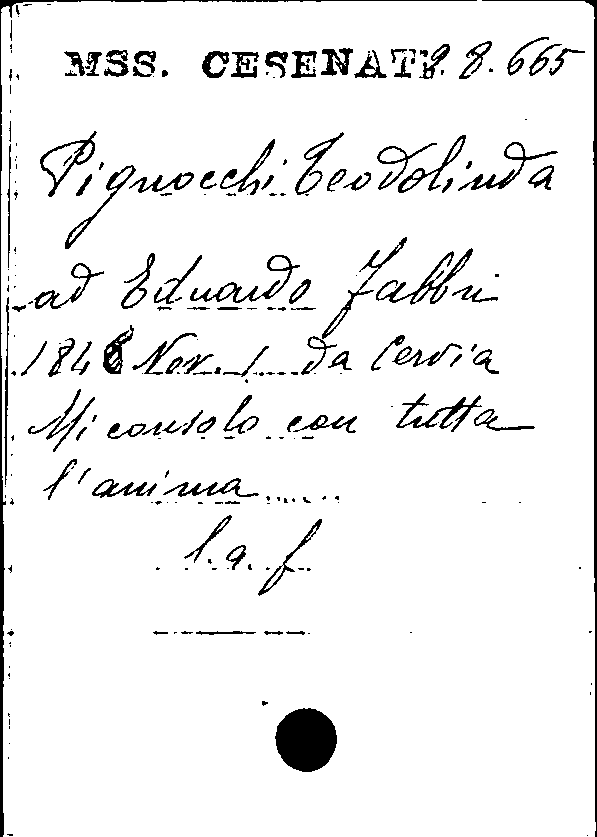 MSS. CESENATI 8.665
Pignocchi Teodolinda
ad Eduardo Fabbri
184 Nov. 1 da Cervia
Mi consolo con tutta
l'anima......
l.a.f